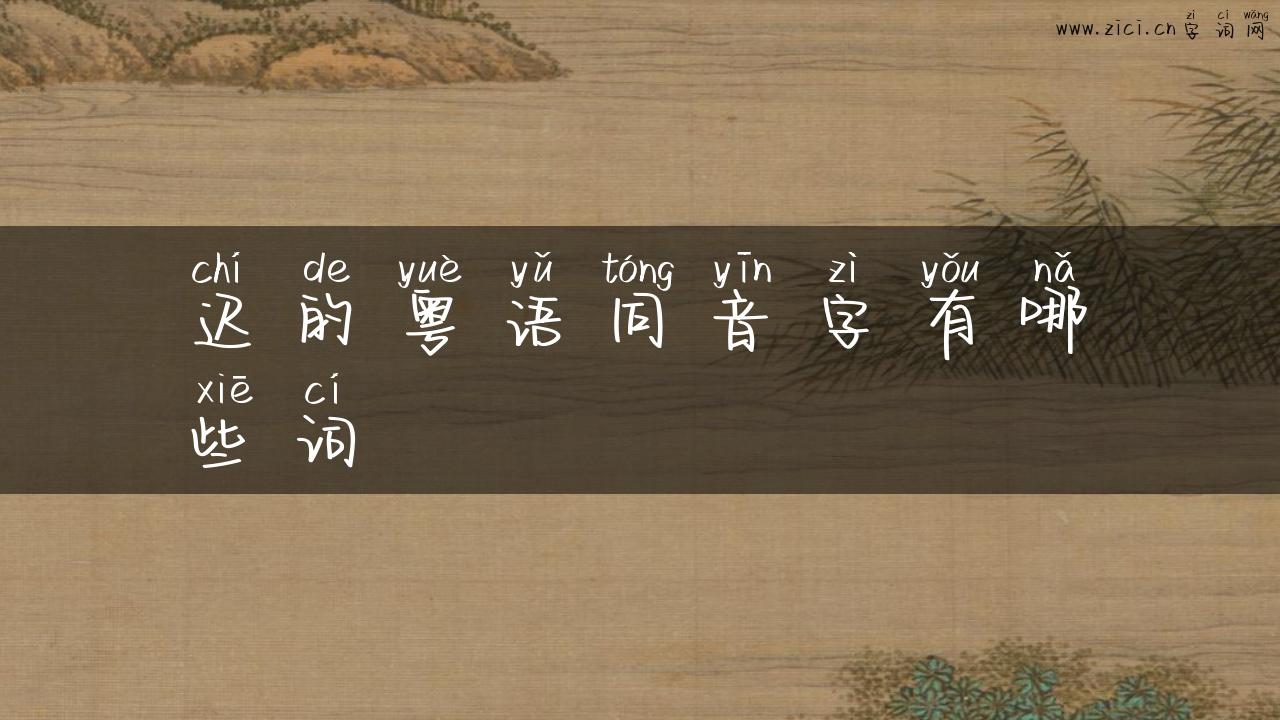 zì cí wǎng
www.zici.cn 字词网
chí de yuè yǔ tóng yīn zì yǒu nǎ
迟的粤语同音字有哪
xiē cí
些词